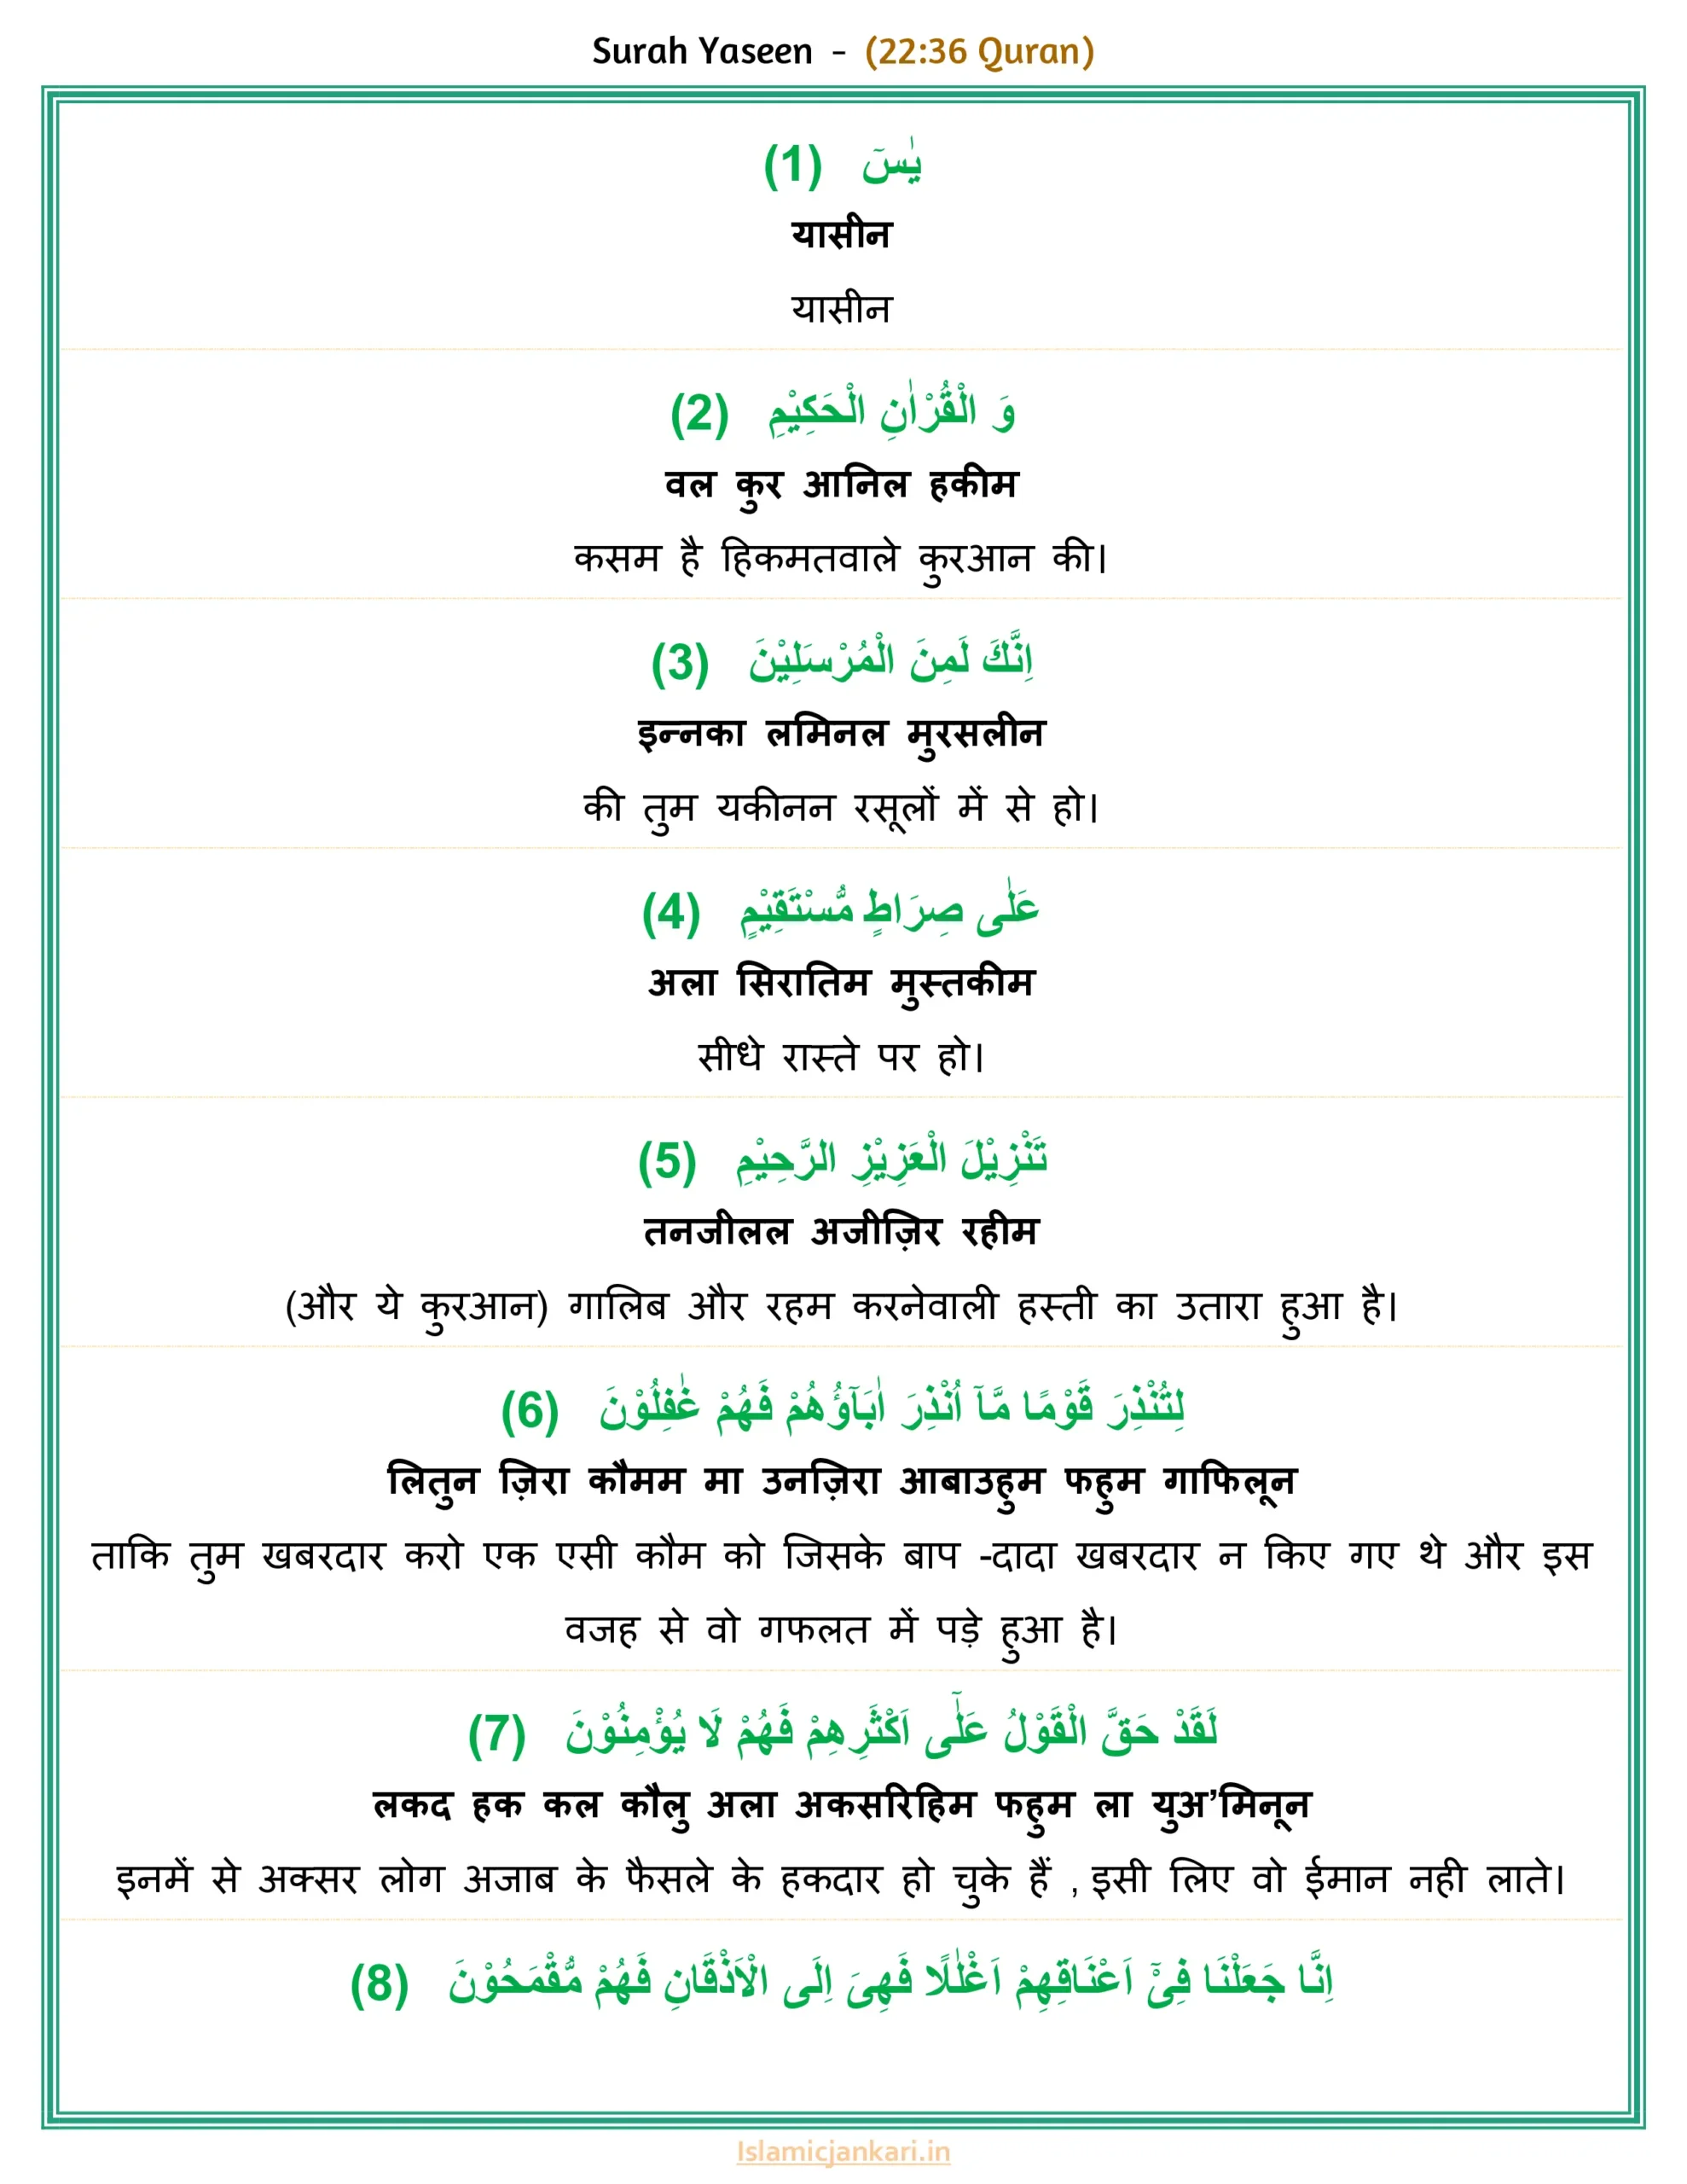 Surah Yaseen - (22:36 Quran)
يٰسٓ (1)
यासीन
यासीन
وَ الْقُرْاٰنِ الْحَكِيْمِ (2)
वल कुर आनिल हकीम
कसम है हिकमतवाले कुरआन की।
اِنَّكَ لَمِنَ الْمُرْسَلِيْنَ (3)
इन्नका लमिनल मुरसलीन
की तुम यकीनन रसूलों में से हो।
عَلٰى صِرَاطٍ مُّسْتَقِيْمٍ (4)
अला सिरातिम मुस्तकीम
सीधे रास्ते पर हो।
تَنْزِيْلَ الْعَزِيْزِ الرَّحِيْمِ (5)
तनजीलल अजीज़िर रहीम
(और ये कुरआन) गालिब और रहम करनेवाली हस्ती का उतारा हुआ है।
لِتُنْذِرَ قَوْمًا مَّآ اُنْذِرَ اٰبَآؤُهُمْ فَهُمْ غٰفِلُوْنَ (6)
लितुन ज़िरा कौमम मा उनज़िरा आबाउहुम फहुम गाफिलून
ताकि तुम खबरदार करो एक एसी कौम को जिसके बाप -दादा खबरदार न किए गए थे और इस
वजह से वो गफलत में पड़े हुआ है।
لَقَدْ حَقَّ الْقَوْلُ عَلٰٓى اَكْثَرِهِمْ فَهُمْ لَا يُؤْمِنُوْنَ (7)
लकद हक कल कौलु अला अकसरिहिम फहुम ला युअ’मिनून
इनमें से अक्सर लोग अजाब के फैसले के हकदार हो चुके हैं , इसी लिए वो ईमान नही लाते।
اِنَّا جَعَلْنَا فِىْٓ اَعْنَاقِهِمْ اَغْلٰلًا فَهِىَ اِلَى الْاَذْقَانِ فَهُمْ مُّقْمَحُوْنَ (8)
Islamicjankari.in